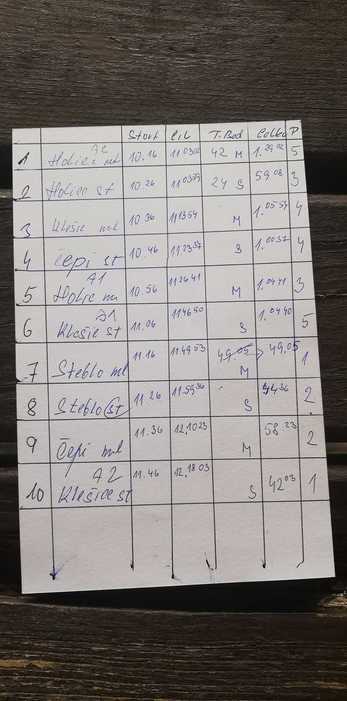 Start Cíl T. Bod Celkem P
1 Holice A2 ml 10.16 110302 42 M 1.2902 5
2 Holice st 10.26 24 S 5908 3
3 ml 10.36 111354 M 1.0554 4
4 Čepí st 10.46 112357 S 1.0057 4
5 A1 10.56 112641 M 1.0441 3
6 Klešice st 11.06 114640 S 1.0440 5
7 Steblo ml 11.16 11.4953 49.05 M 49.05 1
8 Steblo st 11.26 11.5936 S 5436 2
9 Čepí ml 11.36 12.1023 M 58 23 2
10 A2 Klešice st 11.46 12.1803 S 4203 1